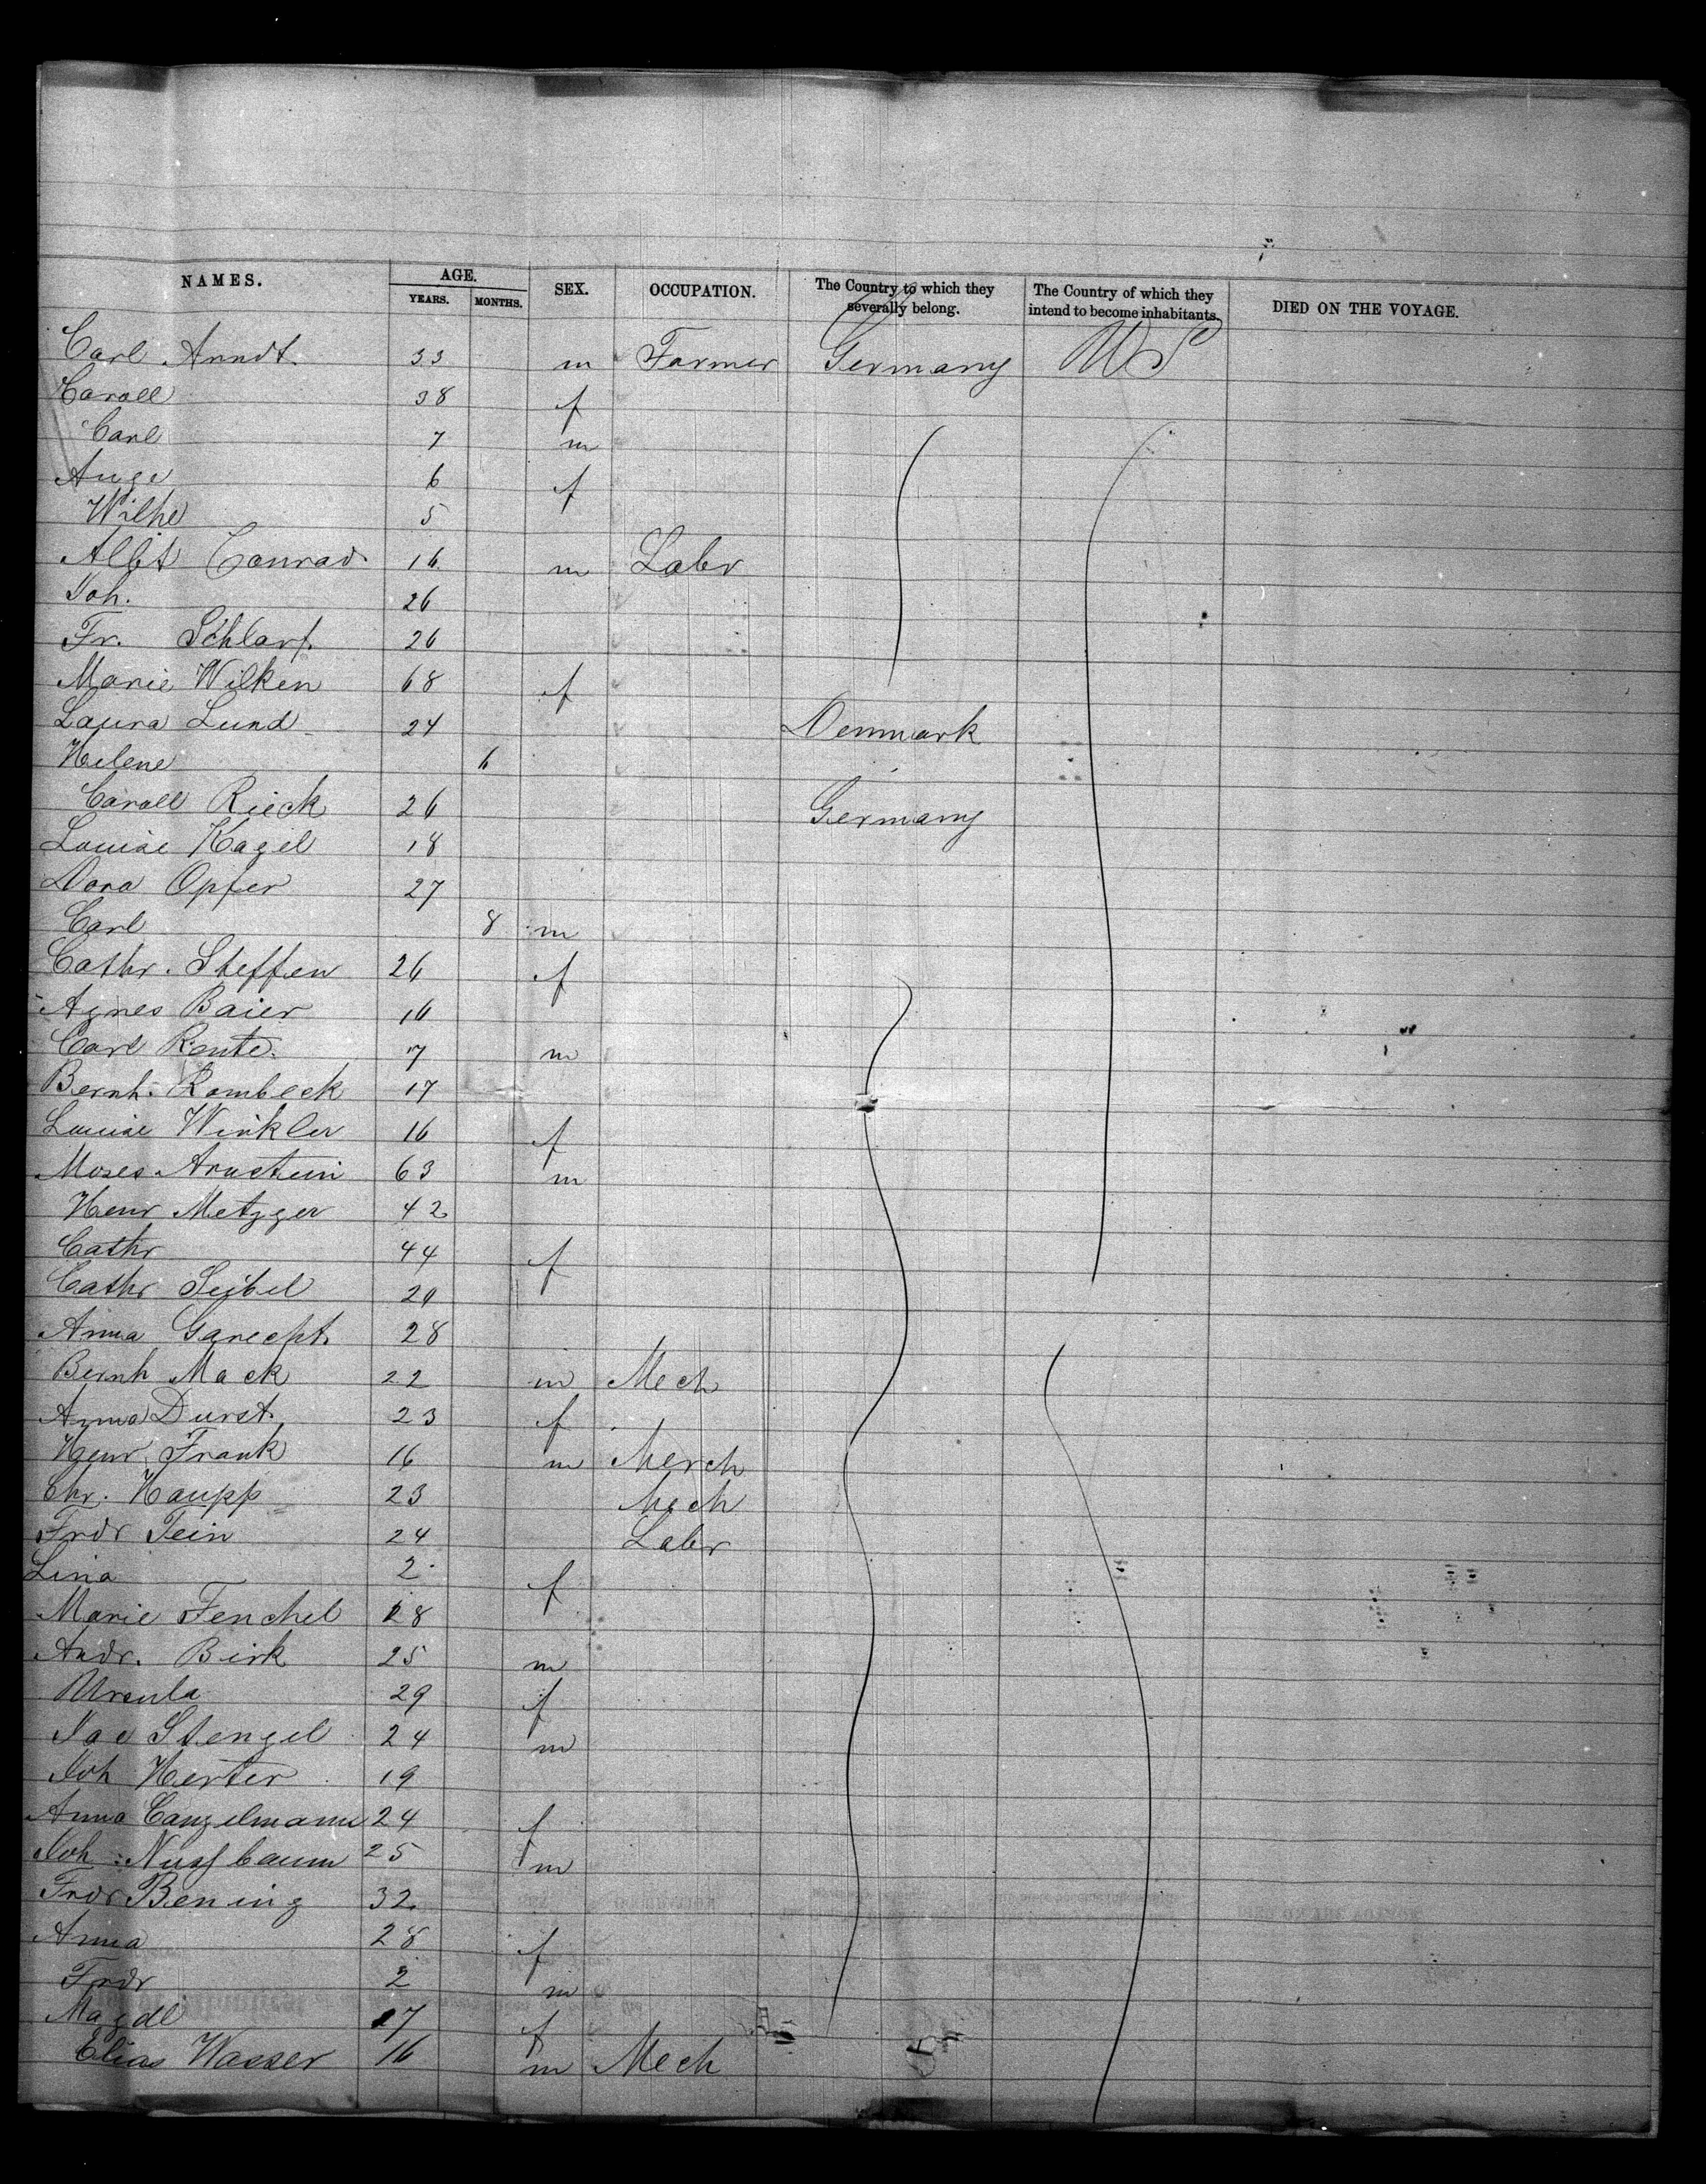 NAMES. AGE. SEX. OCCUPATION. The Country to which they severally belong. The Country of which they intend to become inhabitants. DIED ON THE VOYAGE.
YEARS. MONTHS.
Carl Arndt 33 m Farmer Germany US
Caroll 38 f
Carl 7 m
Auge 6 f
Wilhe 5
Albt Conrad 16 m Labr
Joh. 26
Fr. Schlarf 26
Marie Wilken 68 f
Laura Lund 24 Denmark
Helene 6
Caroll Rieck 26 Germany
Louise Kagel 18
Dora Opfer 27
Carl 8 m
Cathr. Steffen 26 f
Agnes Baier 16
Carl Rente 7 m
Bernh. Rombeck 17
Louise Winkler 16 f
Moses Arnstein 63 m
Henr Metzger 42
Cathr 44 f
Cathr Seibel 20
Anna Garecht 28
Bernh Mack 22 m Mech
Anna Durst 23 f
Henr Frank 16 m Merch
Chr. Haupp 23 Mech
Frdr Fein 24 Labr
Lina 2 f
Marie Fenchel 28
Andr. Birk 25 m
Ursula 29 f
Jac Stengel 24 m
Joh Herter 19
Anna Canzelmann 24 f
Joh Nussbaum 25 m
Frdr Bening 32
Anna 28 f
Frdr 2 m
Magdl 17 f
Elias Wasser 16 m Mech